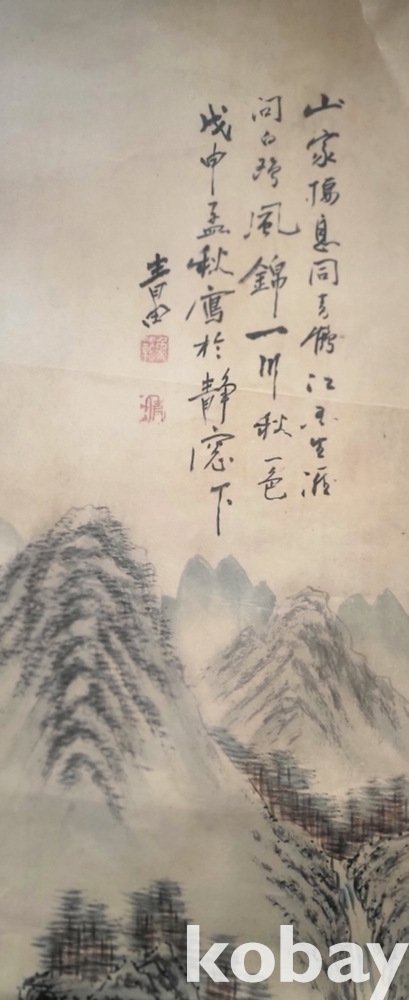 山家棲息同鶴江生涯
問白鷗風錦一川秋一色
戊申孟秋寫於靜窓下
kobay